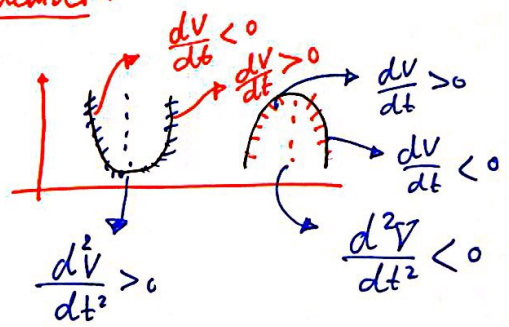 dV/dt < 0
dV/dt > 0
dV/dt > 0
dV/dt < 0
d²V/dt² > 0
d²V/dt² < 0